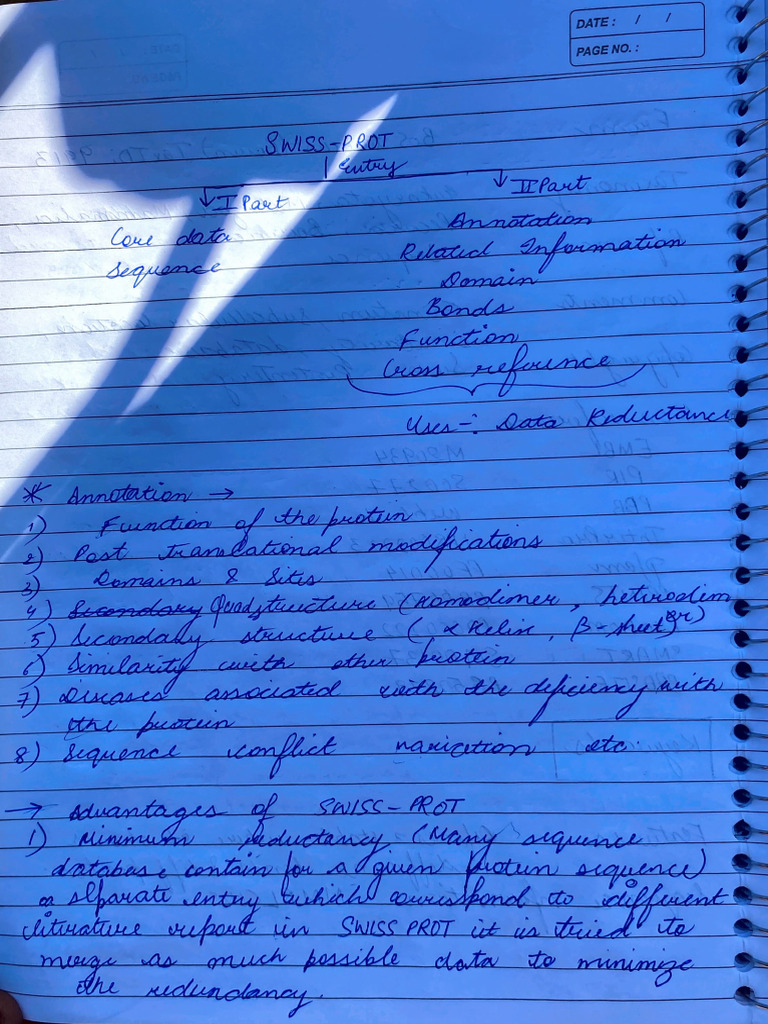 DATE: / /
PAGE NO.:
SWISS-PROT
Entry
I Part
II Part
Core data
Annotation
Sequence
Related Information
Domain
Bonds
Function
Cross reference
Uses -: Data Reductance
* Annotation →
1) Function of the protein
2) Post translational modifications
3) Domains & Sites
4) Secondary Quadstructure (Homodimer, hetirodimer)
5) Secondary structure (α Helix, β-sheet)
6) Similarity with other protein
7) Diseases associated with the deficiency with
the protein
8) Sequence conflict varication etc.
→ Advantages of SWISS-PROT
1) Minimum reductancy (Many sequence
database contain for a given protein sequence)
a separate entry which correspond to different
literature report in SWISS PROT it is tried to
merge as much possible data to minimize
the redundancy.